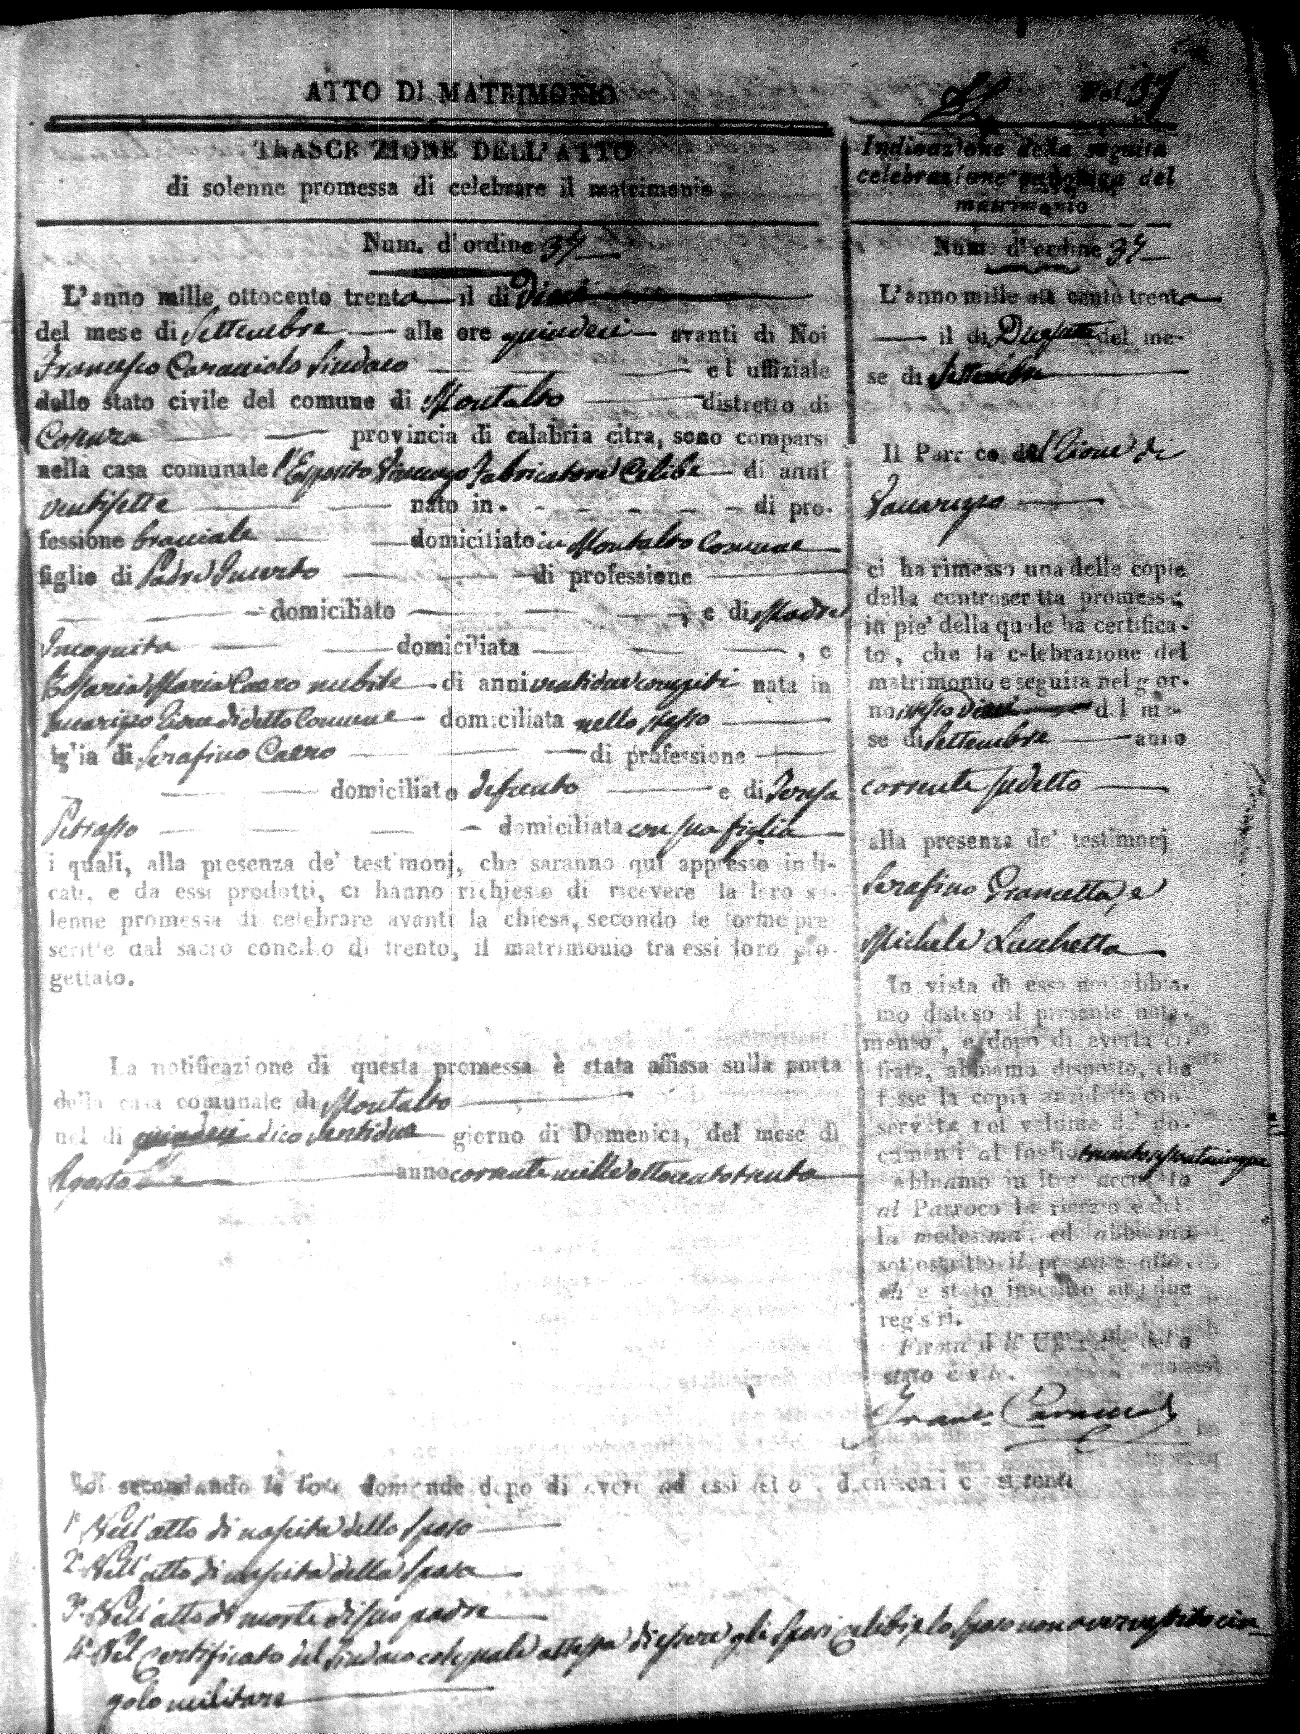 ATTO DI MATRIMONIO
Fol. 37
TRASCRIZIONE DELL' ATTO
di solenne promessa di celebrare il matrimonio
Num. d' ordine 37
L'anno mille ottocento trenta il di Dieci
del mese di Settembre alle ore quindeci avanti di Noi
Francesco Caracciolo Sindaco ed uffiziale
dello stato civile del comune di Montalto distretto di
Cosenza provincia di calabria citra, sono comparsi
nella casa comunale l'Esposito Fabricatore Celibe di anni
ventisette nato in di pro-
fessione bracciale domiciliato in Montalto Comune
figlio di Padre Incerto di professione
domiciliato , e di Madre
Incognita domiciliata , e
Rosaria Maria Caero nubile di anni ventidue compiti nata in
di detto Comune domiciliata nello stesso
figlia di Serafino Caero di professione
domiciliato defunto e di Teresa
Petrasso domiciliata con sua figlia
i quali, alla presenza de' testimonj, che saranno qui appresso indi-
cati, e da essi prodotti, ci hanno richiesto di ricevere la loro so-
lenne promessa di celebrare avanti la chiesa, secondo le forme pre
scritte dal sacro concilio di trento, il matrimonio tra essi loro pro-
gettato.
La notificazione di questa promessa è stata affissa sulla porta
della casa comunale di Montalto
nel di quindeci dico ventidue giorno di Domenica, del mese di
Agosto anno corrente mille ottocento trenta
Indicazione della seguita
celebrazione canonica del
matrimonio
Num. d'ordine 37
L'anno mille otto cento trenta
il di del me-
se di Settembre
Il Parroco di
Vaccarizzo
ci ha rimesso una delle copie
della controscritta promessa
in piè della quale ha certifica-
to, che la celebrazione del
matrimonio e seguita nel gior-
no del me-
se di Settembre anno
corrente sudetto
alla presenza de' testimonj
Serafino e
Michele Lucchetta
In vista di essa noi abbia-
mo disteso il presente nota-
mento, e dopo di averla ci-
frata, abbiamo disposto, che
fosse la copia anzidetta con-
servata nel volume de' do-
cumenti al foglio
abbiamo inoltre accusato
al Parroco la ricezione del-
la medesima, ed abbiamo
sottoscritto il presente atto,
ch' è stato inscritto su i due
registri.
Firma dell' Uffiziale dello
stato civile.
Franc. Caracciolo
Noi secondando le loro domande dopo di avere ad essi letto i documenti consistenti
1° Nell'atto di nascita dello sposo
2° Nell'atto di nascita della sposa
3° Nell'atto di morte di suo padre
4° Nel Certificato del Sindaco col quale attesta di essere gli sposi celibi, e lo sposo non aver
golo militare